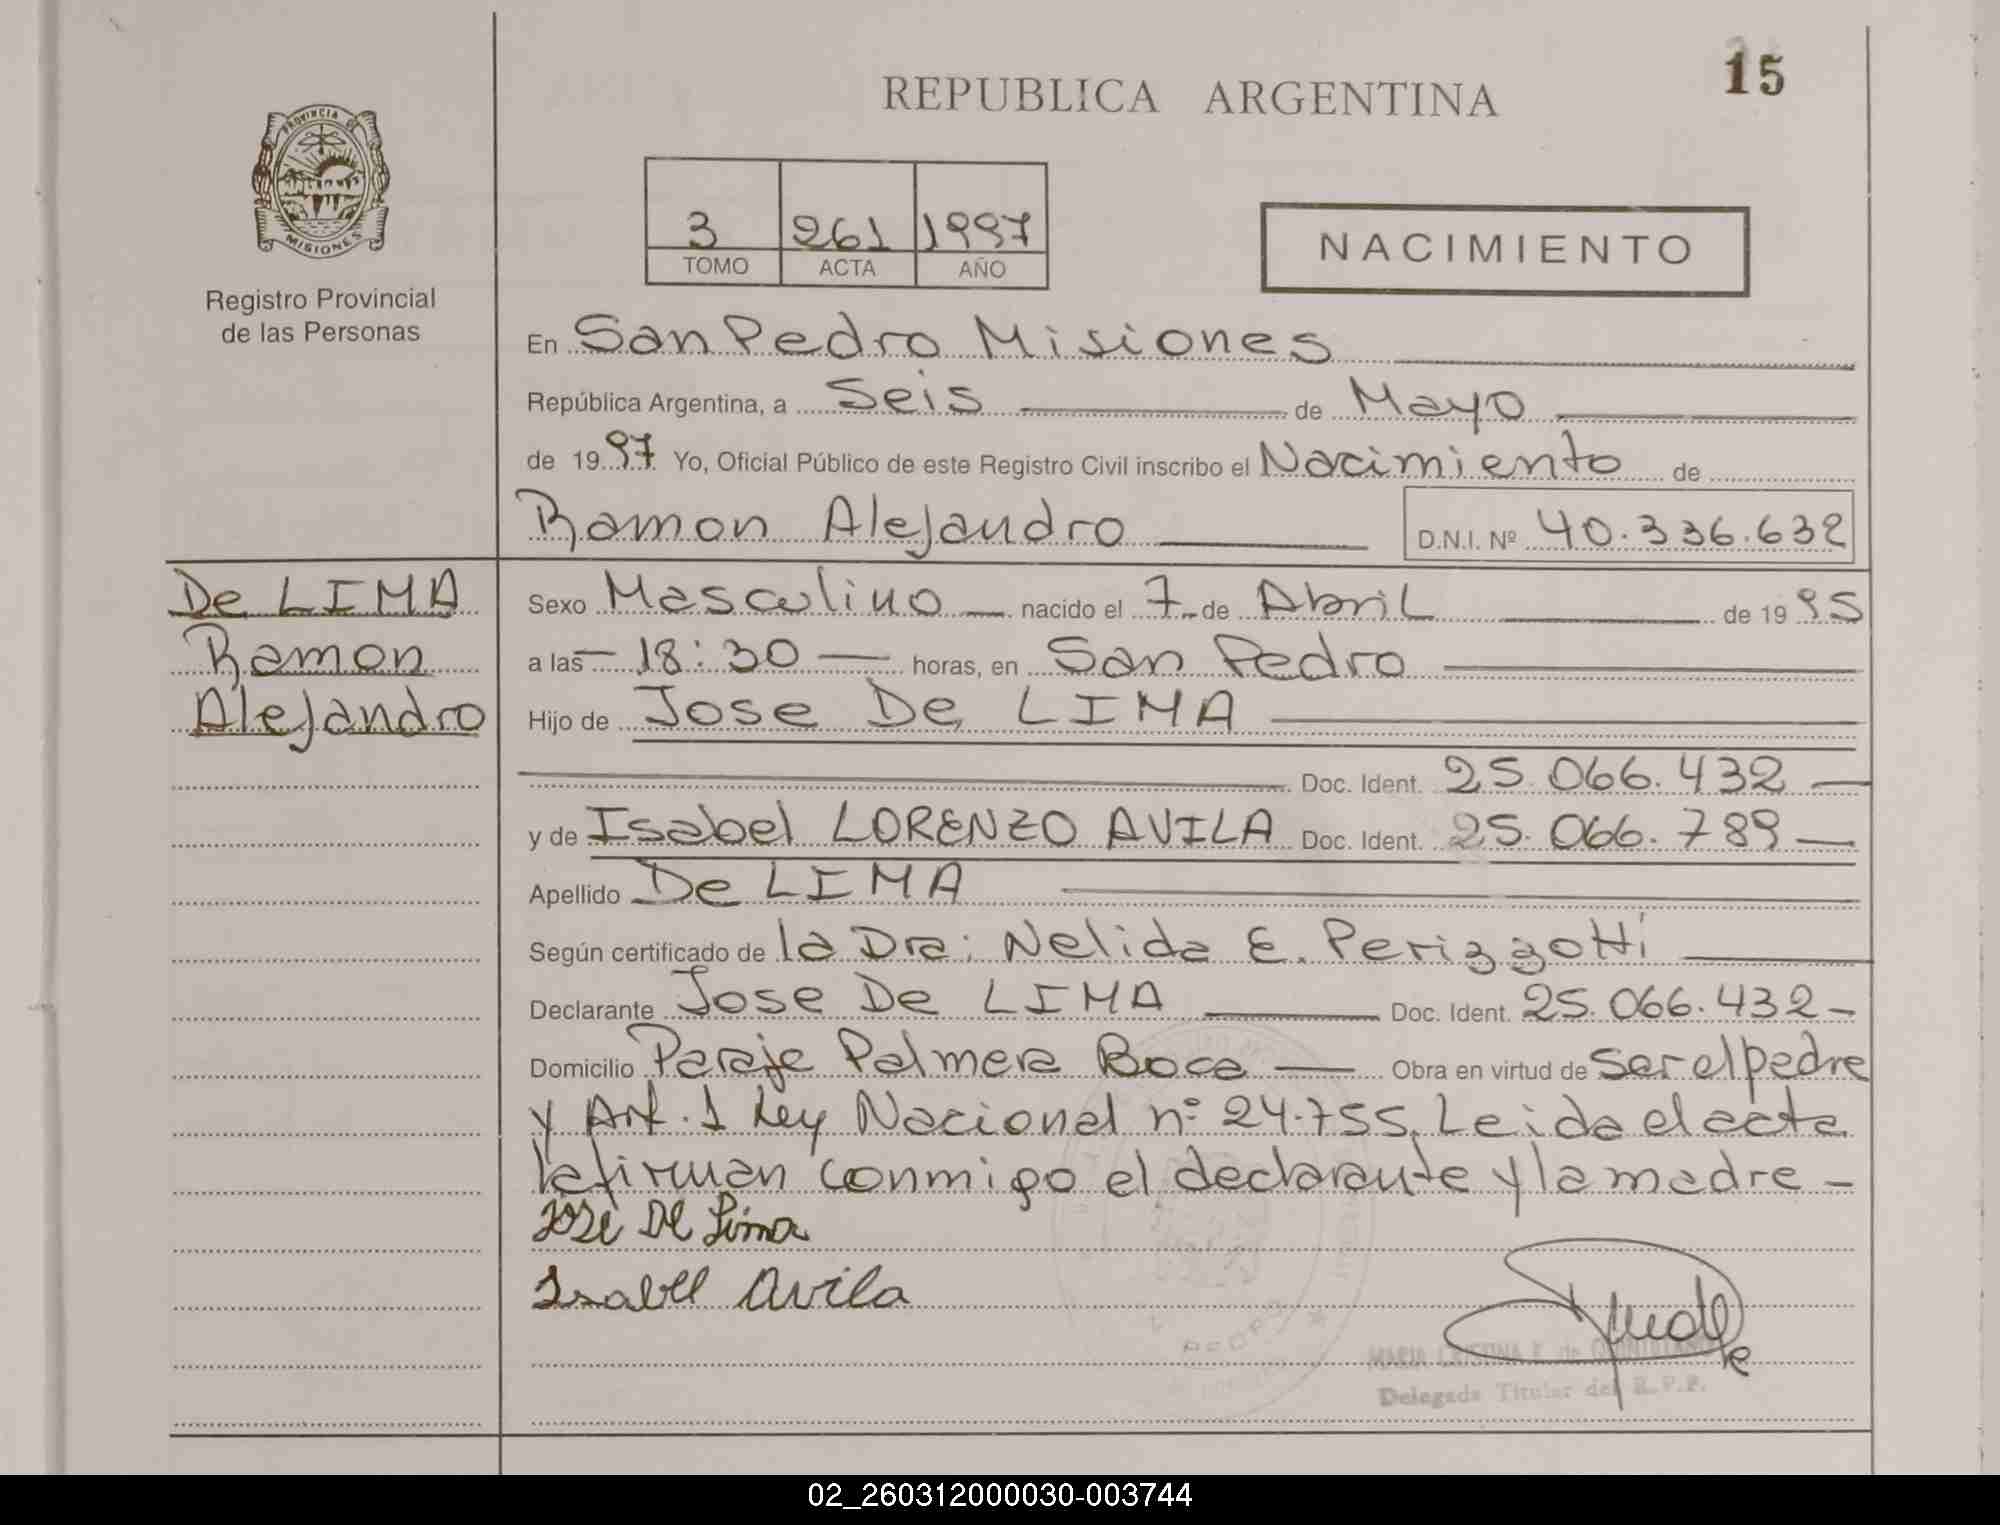 15
REPUBLICA ARGENTINA
PROVINCIA DE
MISIONES
Registro Provincial
de las Personas
3 261 1997
TOMO ACTA AÑO
NACIMIENTO
En San Pedro Misiones
República Argentina, a Seis de Mayo
de 19 97 Yo, Oficial Público de este Registro Civil inscribo el Nacimiento de
Ramon Alejandro D.N.I. Nº 40.336.632
De LIMA
Ramon
Alejandro
Sexo Masculino nacido el 7 de Abril de 19 95
a las 18:30 horas, en San Pedro
Hijo de Jose De LIMA
Doc. Ident. 25.066.432
y de Isabel LORENZO AVILA Doc. Ident. 25.066.789
Apellido De LIMA
Según certificado de la Dra: Nelida E. Perizzotti
Declarante Jose De LIMA Doc. Ident. 25.066.432
Domicilio Paraje Palmera Boca Obra en virtud de ser el padre
y Art. 1 Ley Nacional nº 24.755. Leida el acta
la firman conmigo el declarante y la madre
José De Lima
Isabel Avila
MARIA CRISTINA F. de
Delegada Titular del R.P.P.
02_260312000030-003744